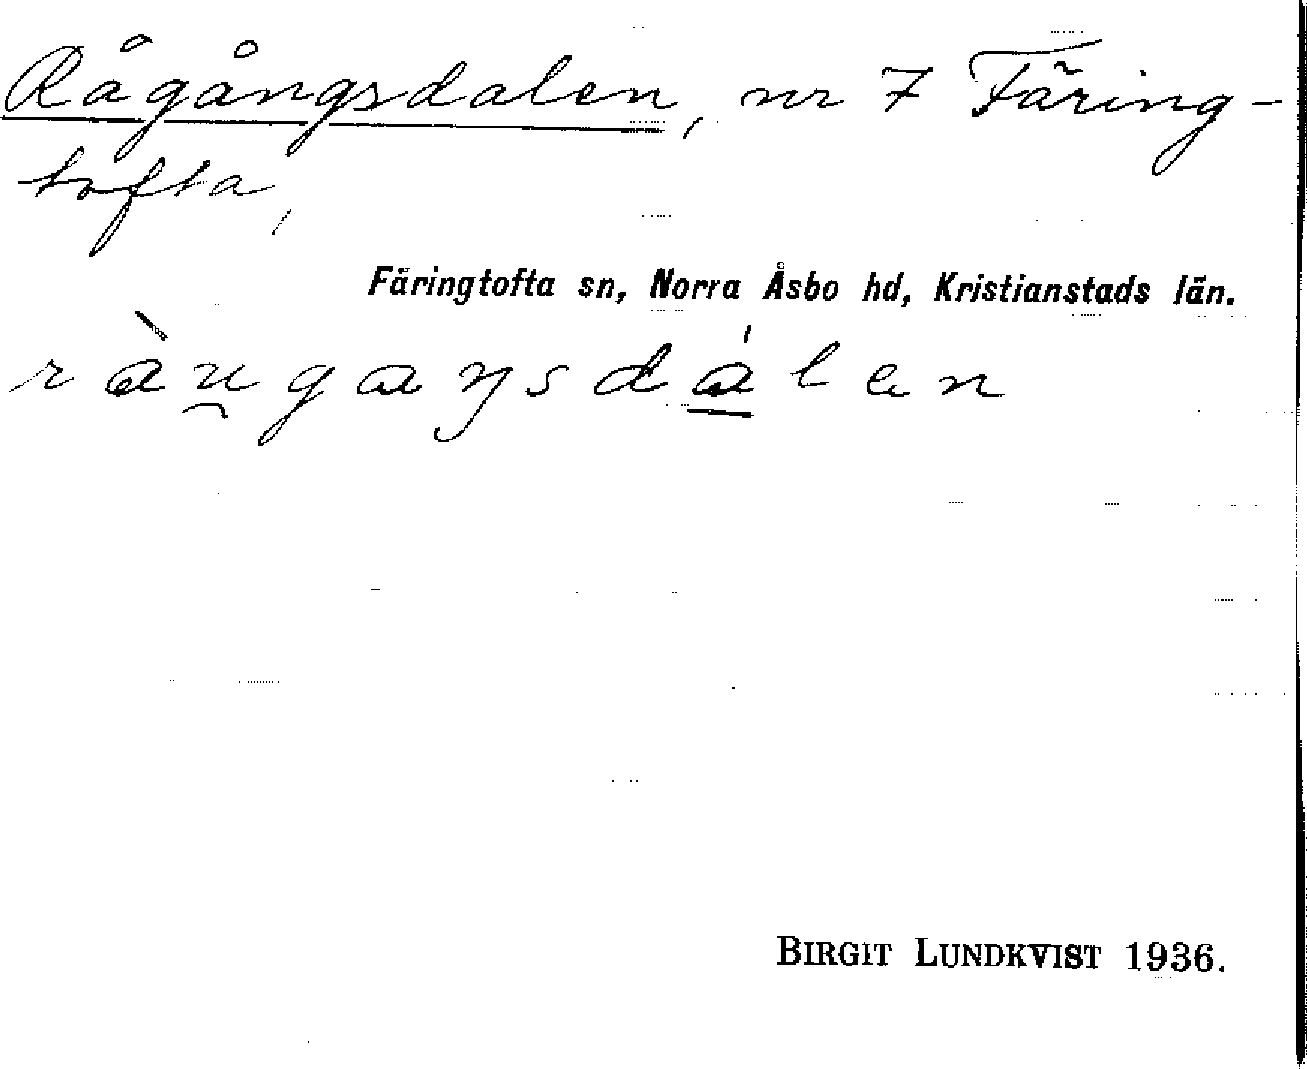 Rågångsdalen, nr 7 Färing-
tofta,
Färingtofta sn, Norra Åsbo hd, Kristianstads län.
ràu̯gaŋsdálen
BIRGIT LUNDKVIST 1936.